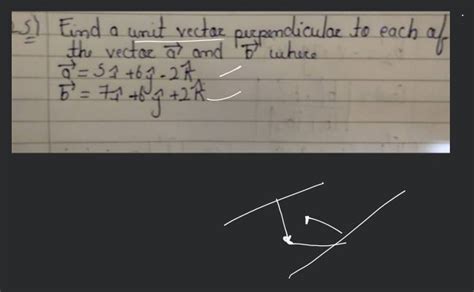 5) Find a unit vector perpendicular to each of
the vector a⃗ and b⃗ where
a⃗ = 5î +6ĵ - 2k̂
b⃗ = 7î +6ĵ +2k̂